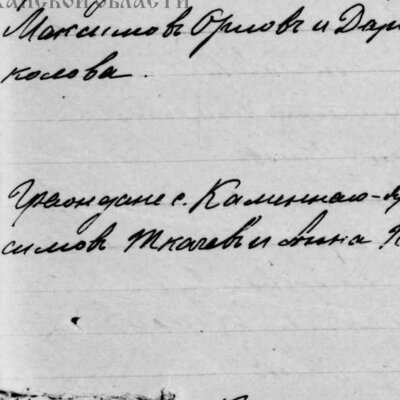 ханской области
Максимовъ Орловъ и Дар
колова.
Граждане с. Каменнаго-Я
симовъ Ткачевъ и Анна